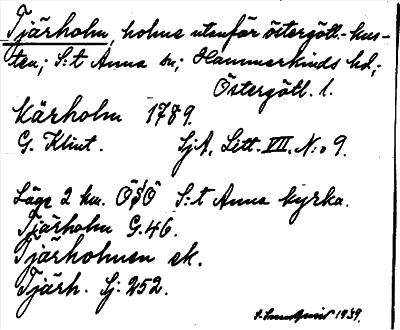 Tjärholm, holme utanför östergötl.-kus-
ten; S:t Anna sn; Hammarkinds hd,;
Östergötl. l.
Kärholm 1789.
G. Klint. SjA. Sett. VII. N:o 9.
Läge 2 km. OSO S:t Anna kyrka.
Tjärholm G. 46.
Tjärholmen ek.
Tjärh. Sj: 252.
1939.